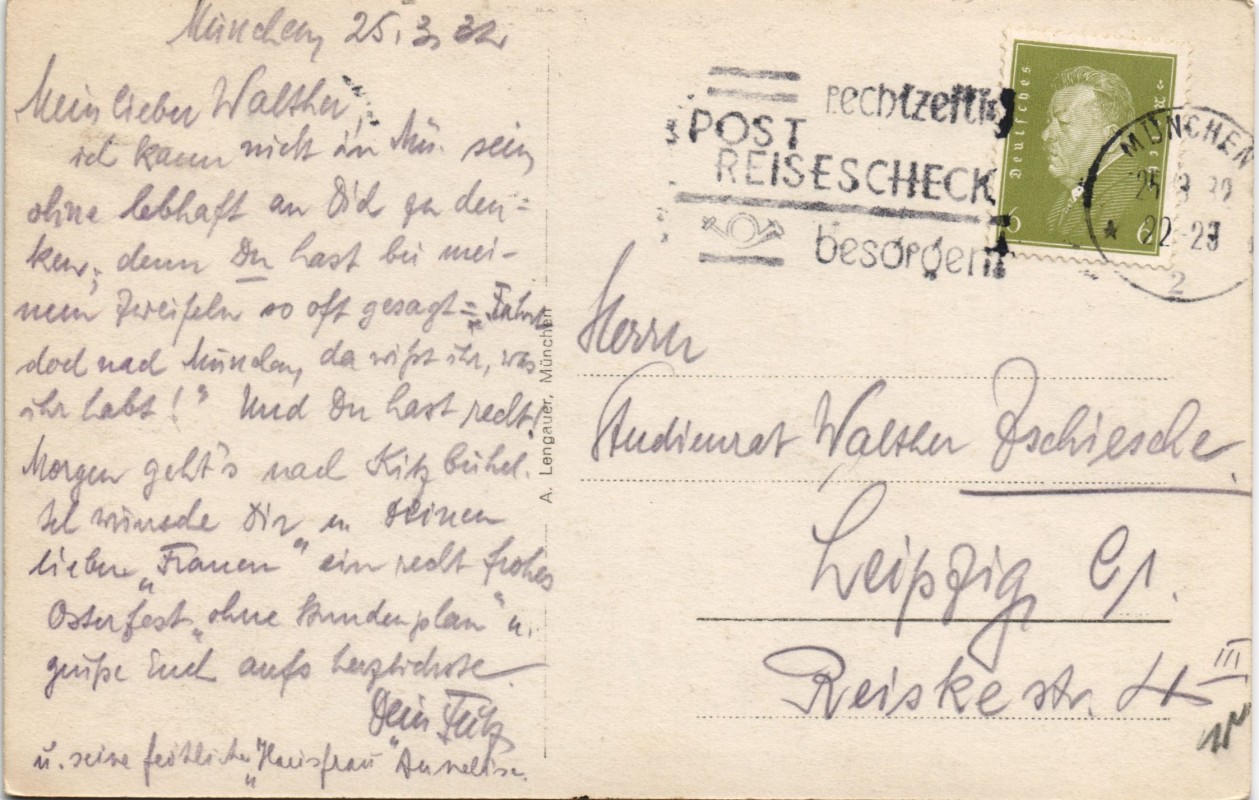 München, 25.3.32.
Mein lieber Walther,
ich kann nicht in Mü. sein,
ohne lebhaft an Dich zu den-
ken, denn Du hast bei mei-
nem Zweifeln so oft gesagt: „Fahrt
doch nach München, da wißt ihr, was
ihr habt!" Und Du hast recht!
Morgen geht's nach Kitzbühel.
Ich wünsche Dir u. Deinen
lieben „Frauen" ein recht frohes
Osterfest „ohne Stundenplan" u.
grüße Euch aufs herzlichste
Dein Fritz
u. seine „Hausfrau" Annelise.
A. Lengauer, München
rechtzeitig
POST
REISESCHECK
besorgen!
Deutsches Reich
6 6
MÜNCHEN
25 3 32
22-23
2
Herrn
Studienrat Walther Zschiesche.
Leipzig C1.
Reiskestr. III